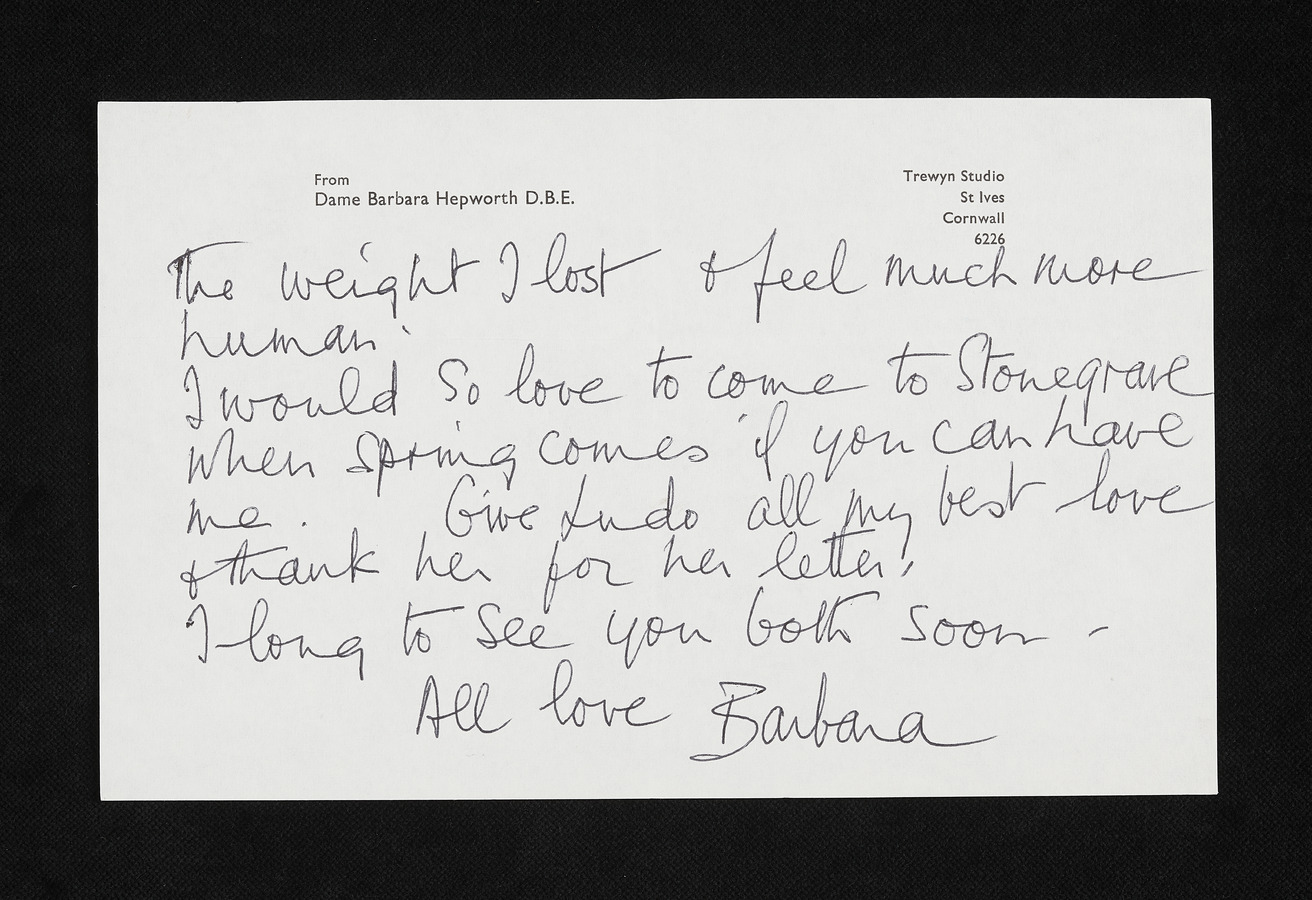 From
Dame Barbara Hepworth D.B.E.
Trewyn Studio
St Ives
Cornwall
6226
The weight I lost & feel much more
human.
I would so love to come to Stonegrave
when Spring comes if you can have
me. Give Ludo all my best love
& thank her for her letter.
I long to see you both soon -
All love Barbara